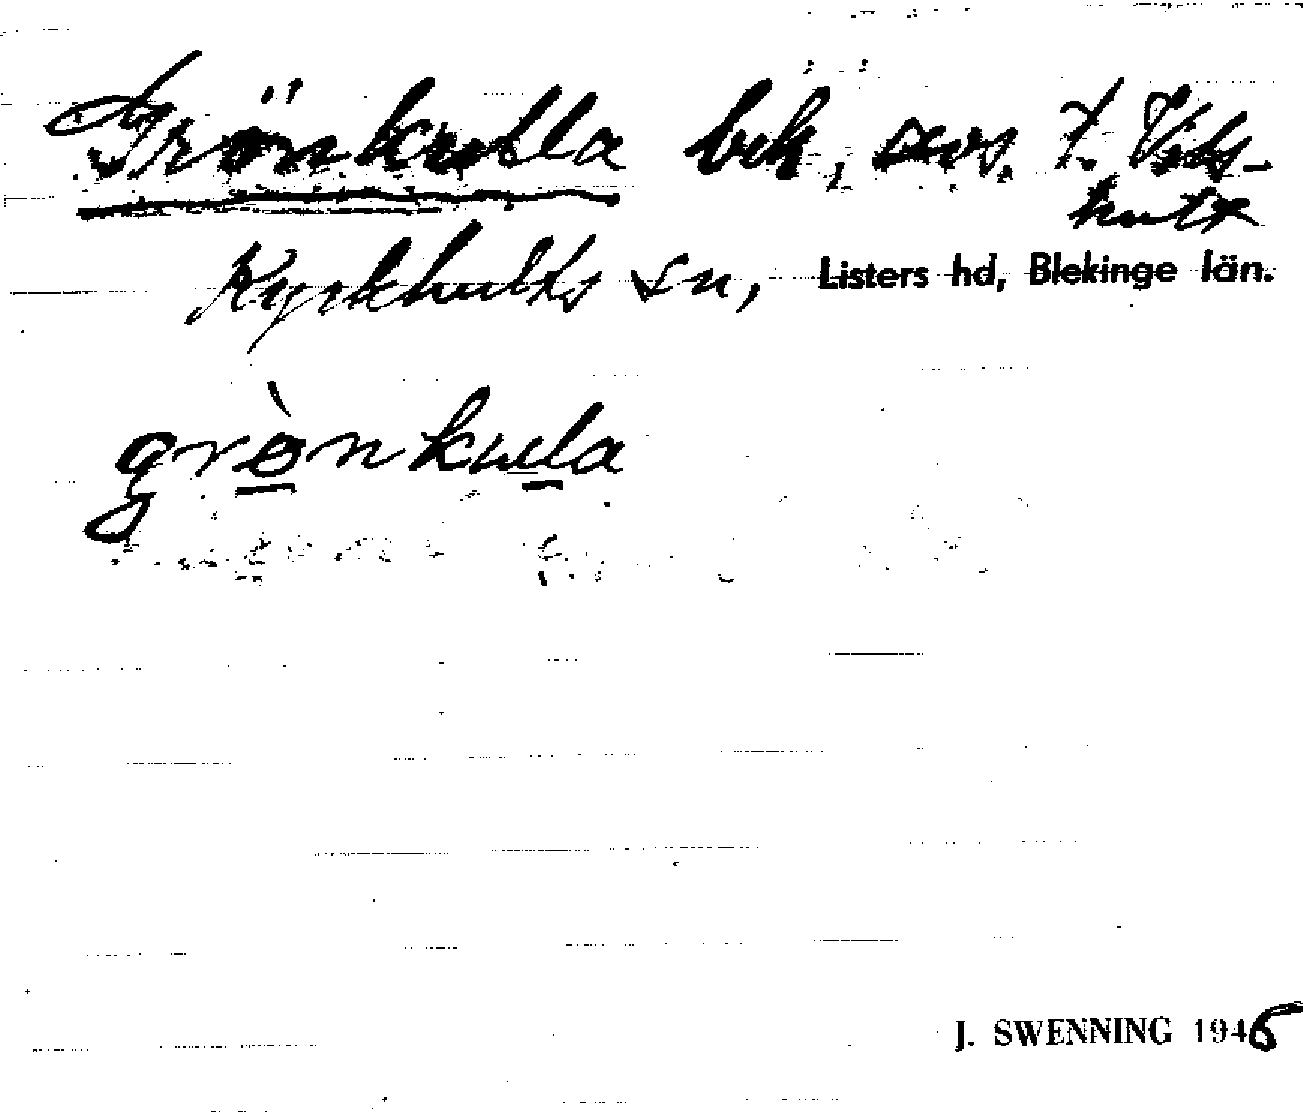 Grönkulla beb, avs. f. Vils-
hult
Kyrkhults sn, Listers hd, Blekinge län.
grònkula
J. SWENNING 1946